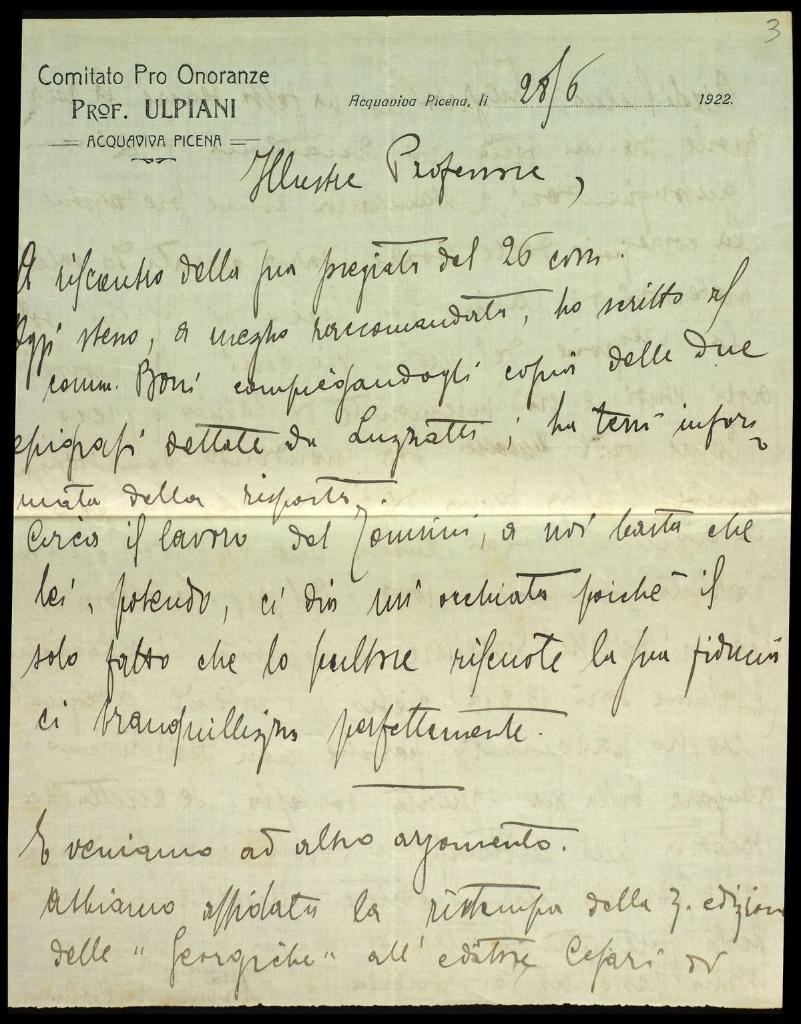 3
Comitato Pro Onoranze
PROF. ULPIANI
ACQUAVIVA PICENA
Acquaviva Picena, li 28/6 1922.
Illustre Professore,
A riscontro della sua pregiata del 26 corr.
Oggi stesso, a mezzo raccomandata, ho scritto al
comm. Boni compiegandogli copia delle due
epigrafi dettate da Luzzatti; la terrò infor-
mata della risposta.
Circa il lavoro del, a noi basta che
lei, potendo, ci dia un'occhiata poichè il
solo fatto che lo scultore riscuote la sua fiducia
ci tranquillizza perfettamente.
E veniamo ad altro argomento.
Abbiamo affidato la ristampa della 3. edizione
delle "Georgiche" all'editore Cesari di